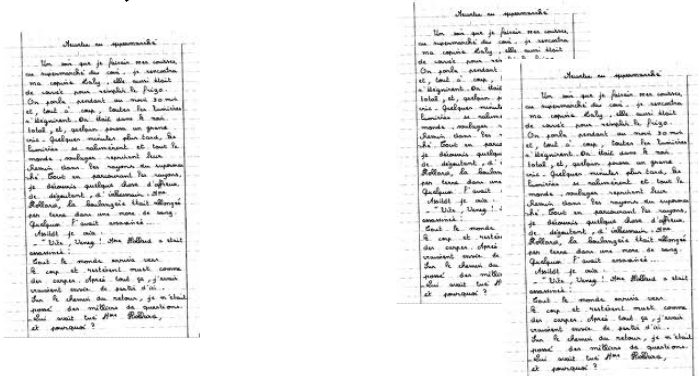 Meurtre au supermarché
Un soir que je faisais mes courses,
au supermarché du coin, je rencontra
ma copine Maly, elle aussi était
de corvée pour remplir le frigo.
On parla pendant au moins 30 min
et, tout à coup, toutes les lumières
s'éteignirent. On était dans le noir
total, et, quelqu'un poussa un grand
cris. Quelques minutes plus tard, les
lumières se rallumèrent et tout le
monde, soulagés reprirent leur
chemin dans les rayons du superma
ché. Tout en parcourant les rayons,
je découvris quelque chose d'affreux,
de dégoutant, d'inhumain. Mme
Rollard, la boulangère était allongée
par terre dans une mare de sang.
Quelqu'un l'avait assassinée...
Aussitôt je cria :
- "Vite, Venez ! Mme Rollard a était
assassinée
Tout le monde arriva vers
le corp et restèrent muet comme
des carpes. Après tout ça, j'avais
vraiment envie de partir d'ici...
Sur le chemin du retour, je m'était
posée des milliers de questions
- Qui avait tué Mme Rollard,
et pourquoi ?
Meurtre au supermarché
Un soir que je faisais mes courses,
au supermarché du coin, je rencontra
ma copine Maly, elle aussi était
de corvée pour
On parla pendant
et, tout à coup,
s'éteignirent. On était
total, et, quelqu'un
cris. Quelques minutes
lumières se rallum
monde, soulagés
chemin dans les
ché. Tout en parco
je découvris quelque
de dégoutant, d'
Rollard, la boulan
par terre dans une
Quelqu'un l'avait
Aussitôt je cria :
- "Vite, Venez !
assassinée
Tout le monde
le corp et restèr
des carpes. Après
vraiment envie
Sur le chemin
posée des milli
- Qui avait tué M
et pourquoi ?
Meurtre au supermarché
Un soir que je faisais mes courses,
au supermarché du coin, je rencontra
ma copine Maly, elle aussi était
de corvée pour remplir le frigo.
On parla pendant au moins 30 min
et, tout à coup, toutes les lumières
s'éteignirent. On était dans le noir
total, et, quelqu'un poussa un grand
cris. Quelques minutes plus tard, les
lumières se rallumèrent et tout le
monde, soulagés reprirent leur
chemin dans les rayons du superma
ché. Tout en parcourant les rayons,
je découvris quelque chose d'affreux,
de dégoutant, d'inhumain. Mme
Rollard, la boulangère était allongée
par terre dans une mare de sang.
Quelqu'un l'avait assassinée...
Aussitôt je cria :
- "Vite, Venez ! Mme Rollard a était
assassinée
Tout le monde arriva vers
le corp et restèrent muet comme
des carpes. Après tout ça, j'avais
vraiment envie de partir d'ici...
Sur le chemin du retour, je m'était
posée des milliers de questions
- Qui avait tué Mme Rollard,
et pourquoi ?